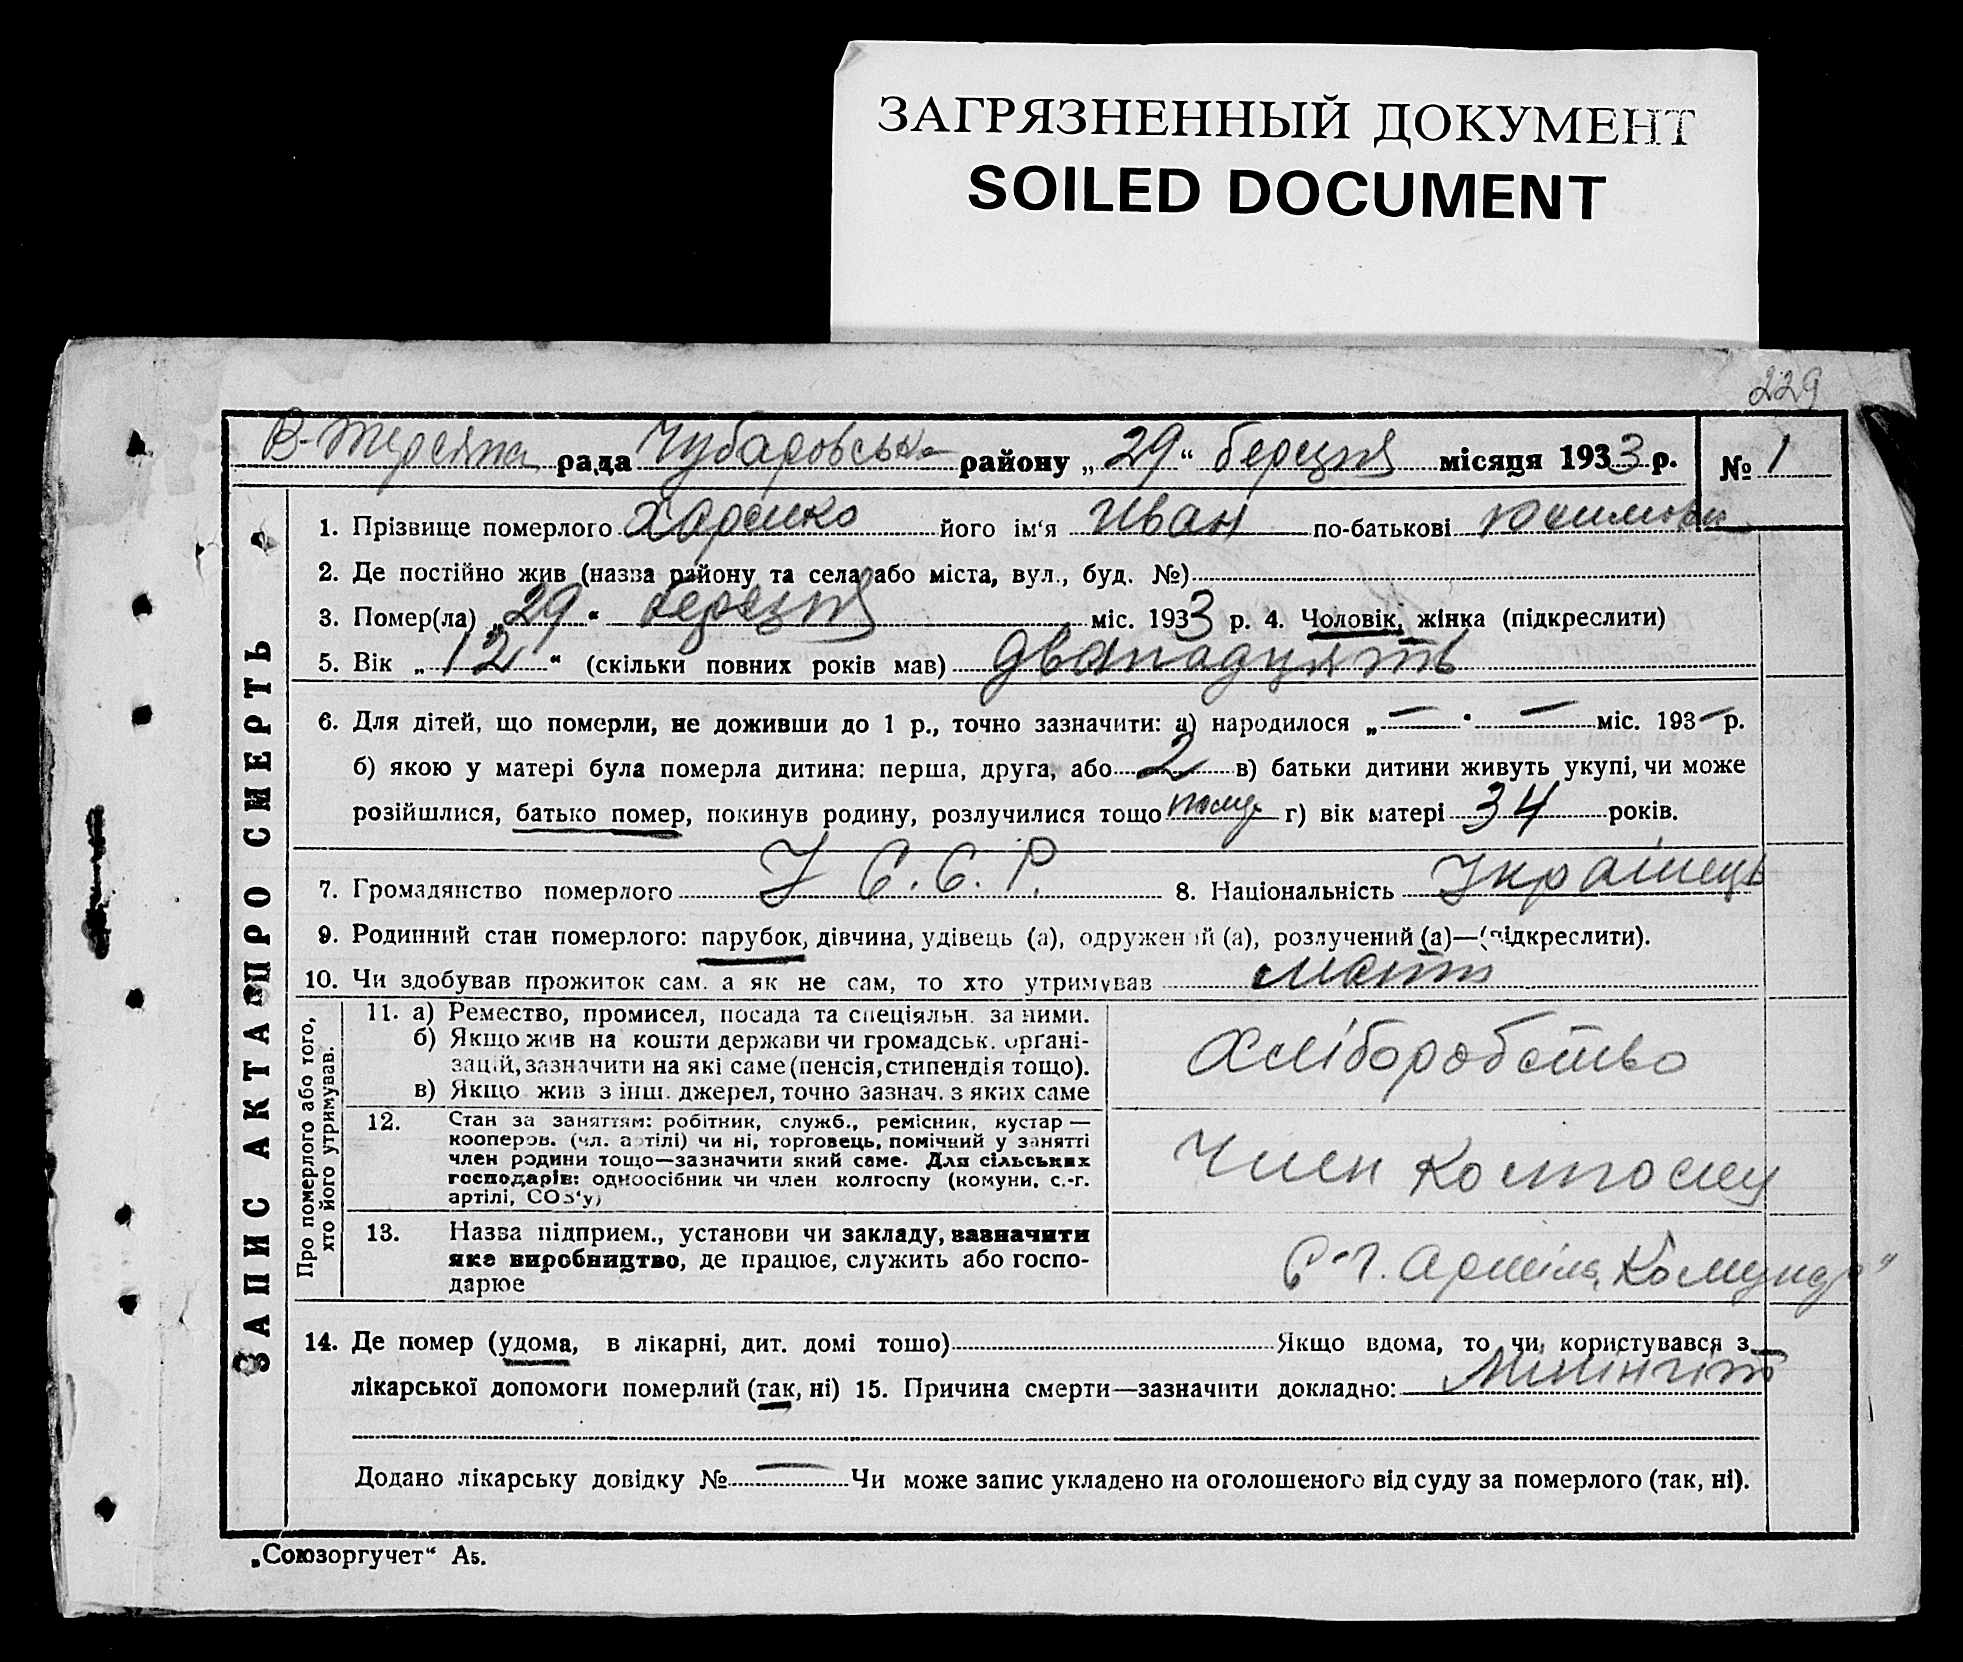 ЗАГРЯЗНЕННЫЙ ДОКУМЕНТ
SOILED DOCUMENT
229
В-Терсяна рада Чубаровська району „29“ березня місяця 1933 р. № 1
ЗАПИС АКТА ПРО СМЕРТЬ
1. Прізвище померлого Харенко його ім‘я Иван по-батькові
2. Де постійно жив (назва району та села або міста, вул., буд. №)
3. Помер(ла) „29“ березня міс. 1933 р. 4. Чоловік, жінка (підкреслити)
5. Вік „12“ (скільки повних років мав) дванадцять
6. Для дітей, що померли, не доживши до 1 р., точно зазначити: а) народилося „—“ — міс. 193— р.
б) якою у матері була померла дитина: перша, друга, або 2 в) батьки дитини живуть укупі, чи може
розійшлися, батько помер, покинув родину, розлучилися тощо г) вік матері 34 років.
7. Громадянство померлого У С.С.Р. 8. Національність Українець
9. Родинний стан померлого: парубок, дівчина, удівець (а), одружений (а), розлучений (а)—(підкреслити).
10. Чи здобував прожиток сам, а як не сам, то хто утримував мать
Про померлого або того,
хто його утримував.
11. а) Ремество, промисел, посада та спеціяльн. за ними.
б) Якщо жив на кошти держави чи громадськ. органі-
зацій, зазначити на які саме (пенсія, стипендія тощо).
в) Якщо жив з інш. джерел, точно зазнач. з яких саме
Хліборобство
12. Стан за заняттям: робітник, служб., ремісник, кустар —
кооперов. (чл. артілі) чи ні, торговець, помічний у занятті
член родини тощо—зазначити який саме. Для сільських
господарів: одноосібник чи член колгоспу (комуни, с.-г.
артілі, СОЗ‘у)
Член колгоспу
13. Назва підприєм., установи чи закладу, зазначити
яке виробництво, де працює, служить або госпо-
дарює
С-г. артіль „Комунар“
14. Де помер (удома, в лікарні, дит. домі тощо) Якщо вдома, то чи користувався з
лікарської допомоги померлий (так, ні) 15. Причина смерти—зазначити докладно: Минінгіт
Додано лікарську довідку № — Чи може запис укладено на оголошеного від суду за померлого (так, ні).
„Союзоргучет“ А5.